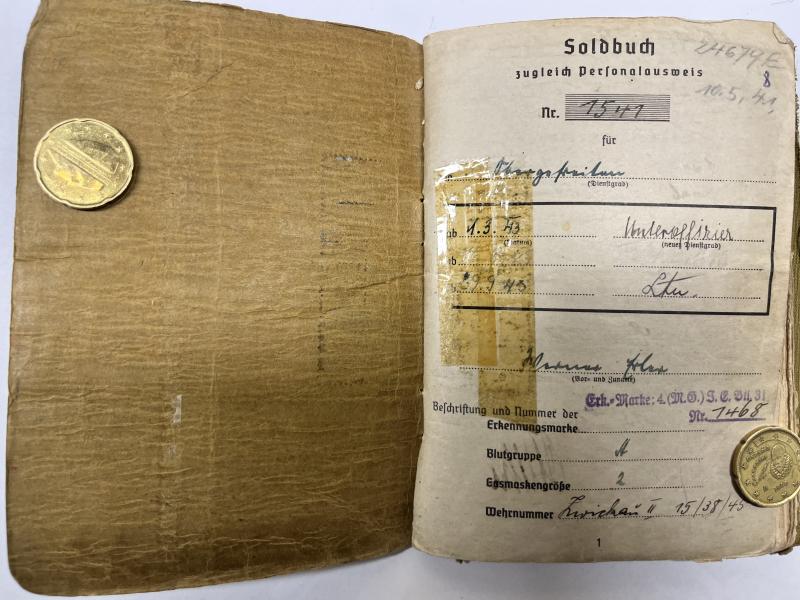 Soldbuch
24679E
zugleich Personalausweis
8
10.5.41,
Nr. 1541
für
Obergefreiten
(Dienstgrad)
ab 1.3.43 Unteroffizier
(Datum) (neuer Dienstgrad)
ab
29.9.43 Ltn.
Werner
(Vor- und Zuname)
Beschriftung und Nummer der
Erkennungsmarke
Erk.-Marke: 4.(M.G.) J.E. Btl. 31
Nr. 1468
Blutgruppe A
Gasmaskengröße 2
Wehrnummer Zwickau II 15/38/45
1